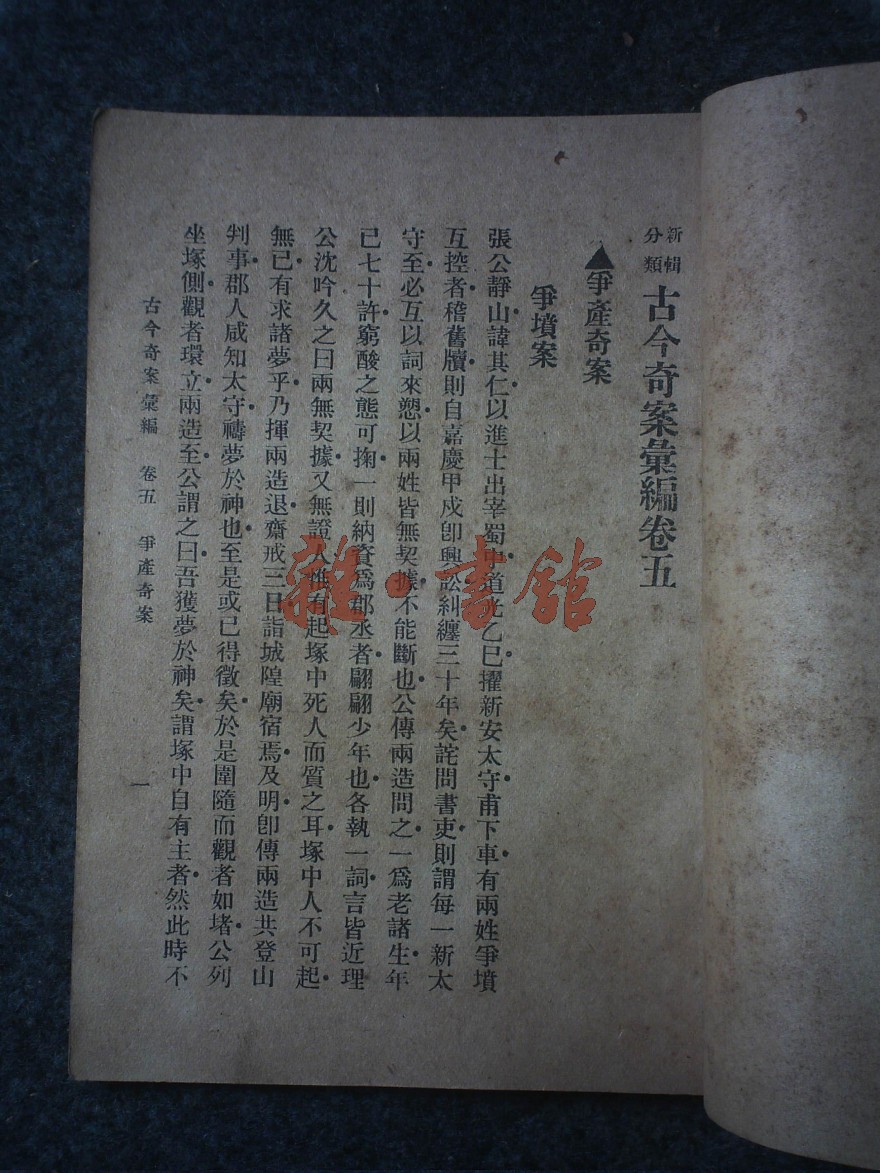 新輯
分類
古今奇案彙編卷五
▲爭產奇案
爭墳案
張公靜山諱其仁以進士出宰蜀中道光乙巳擢新安太守甫下車有兩姓爭墳
互控者稽舊牘則自嘉慶甲戌卽興訟糾纏三十年矣詫問書吏則謂每一新太
守至必互以詞來愬以兩姓皆無契據不能斷也公傳兩造問之一爲老諸生年
已七十許窮酸之態可掬一則納資爲郡丞者翩翩少年也各執一詞言皆近理
公沈吟久之曰兩無契據又無證人惟有起塚中死人而質之耳塚中人不可起
無已有求諸夢乎乃揮兩造退齋戒三日詣城隍廟宿焉及明卽傳兩造共登山
判事郡人咸知太守禱夢於神也至是或已得徵矣於是圍隨而觀者如堵公列
坐塚側觀者環立兩造至公謂之曰吾獲夢於神矣謂塚中自有主者然此時不
古今奇案彙編 卷五 爭產奇案
一
雜·書館